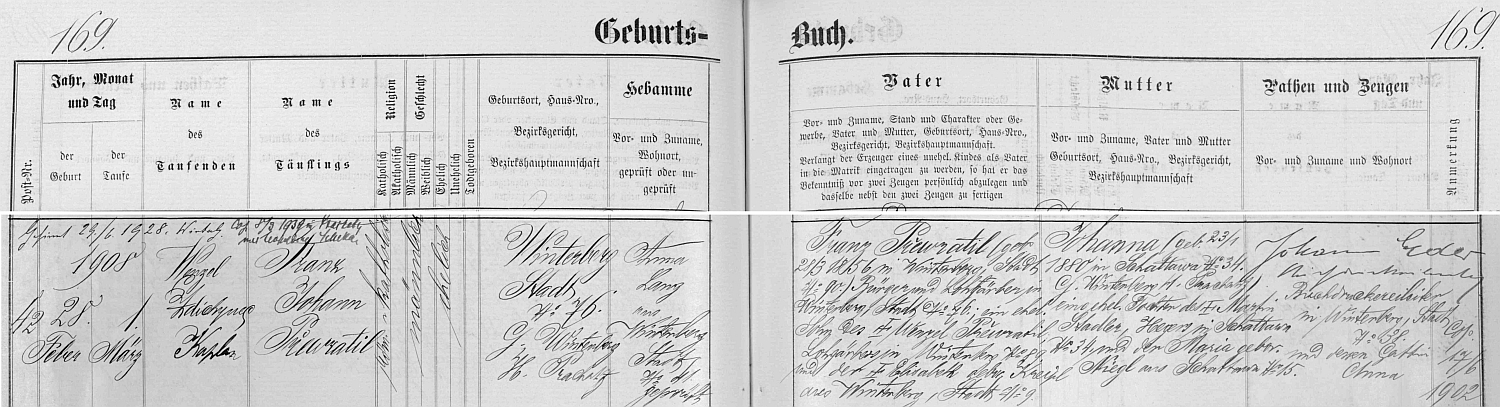 169.
Geburts-
Buch.
169.
Post-Nr.
Jahr, Monat
und Tag
der
Geburt
der
Taufe
Name
des
Taufenden
Name
des
Täuflings
Religion
Katholisch
Akatholisch
Geschlecht
Männlich
Weiblich
Ehelich
Unehelich
Todtgeboren
Geburtsort, Haus-Nro.,
Bezirksgericht,
Bezirkshauptmannschaft
Hebamme
Vor- und Zuname,
Wohnort,
geprüft oder un-
geprüft
Vater
Vor- und Zuname, Stand und Charakter oder Ge-
werbe, Vater und Mutter, Geburtsort, Haus-Nro.,
Bezirksgericht, Bezirkshauptmannschaft.
Verlangt der Erzeuger eines unehel. Kindes als Vater
in die Matrik eingetragen zu werden, so hat er das
Bekenntniß vor zwei Zeugen persönlich abzulegen und
dasselbe nebst den zwei Zeugen zu fertigen
Mutter
Vor- und Zuname, Vater und Mutter
Geburtsort, Haus-Nro., Bezirksgericht,
Bezirkshauptmannschaft
Pathen und Zeugen
Vor- und Zuname und Wohnort
Anmerkung
Gefirmt 29/6 1928. Winterbg
1908
42
28.
Feber
1.
März
Wenzel
Kaplan
Franz
Johann
Přewratil
Winterberg
Stadt
No 76.
G. Winterberg
H. Prachatitz
Anna
Lang
aus
Winterberg
Stadt
geprüft
Franz Přewratil (geb.
21/3 1856 in Winterberg, Stadt
No 9.) Bürger und Lohfärber in
Winterberg, Stadt No 76; ein ehel.
Sohn des † Wenzel Přewratil,
in Winterberg No 9
und der † Elisabeth
aus Winterberg, Stadt No 9
Johanna (geb. 23/1
1880 in Schattawa No 34.
G. Winterberg H. Prachatitz)
eine ehel. Tochter des † Martin
Stadler, Hegers in Schattawa
No 34, und der Maria gebor.
Stiegl aus Schattawa No 15.
Johann Eder
Buchdruckereileiter
in Winterberg, Stadt
und deren Gattin
Anna
17/6
1902